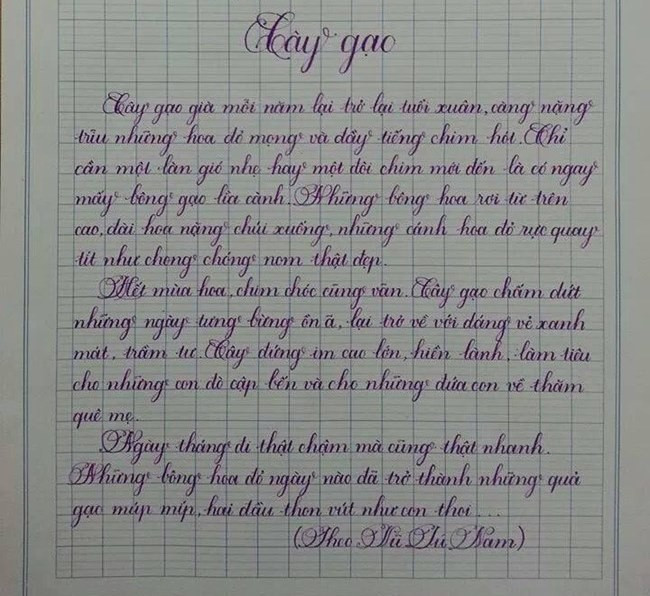 Cây gạo
Cây gạo già mỗi năm lại trở lại tuổi xuân, càng nặng
trĩu những hoa đỏ mọng và đầy tiếng chim hót. Chỉ
cần một làn gió nhẹ hay một đôi chim mới đến là có ngay
mấy bông gạo lìa cành. Những bông hoa rơi từ trên
cao, đài hoa nặng chúi xuống, những cánh hoa đỏ rực quay
tít như chong chóng nom thật đẹp.
Hết mùa hoa, chim chóc cũng vãn. Cây gạo chấm dứt
những ngày tưng bừng ồn ã, lại trở về với dáng vẻ xanh
mát, trầm tư. Cây đứng im cao lớn, hiền lành, làm tiêu
cho những con đò cập bến và cho những đứa con về thăm
quê mẹ.
Ngày tháng đi thật chậm mà cũng thật nhanh.
Những bông hoa đỏ ngày nào đã trở thành những quả
gạo múp míp, hai đầu thon vút như con thoi...
(Theo Vũ Tú Nam)